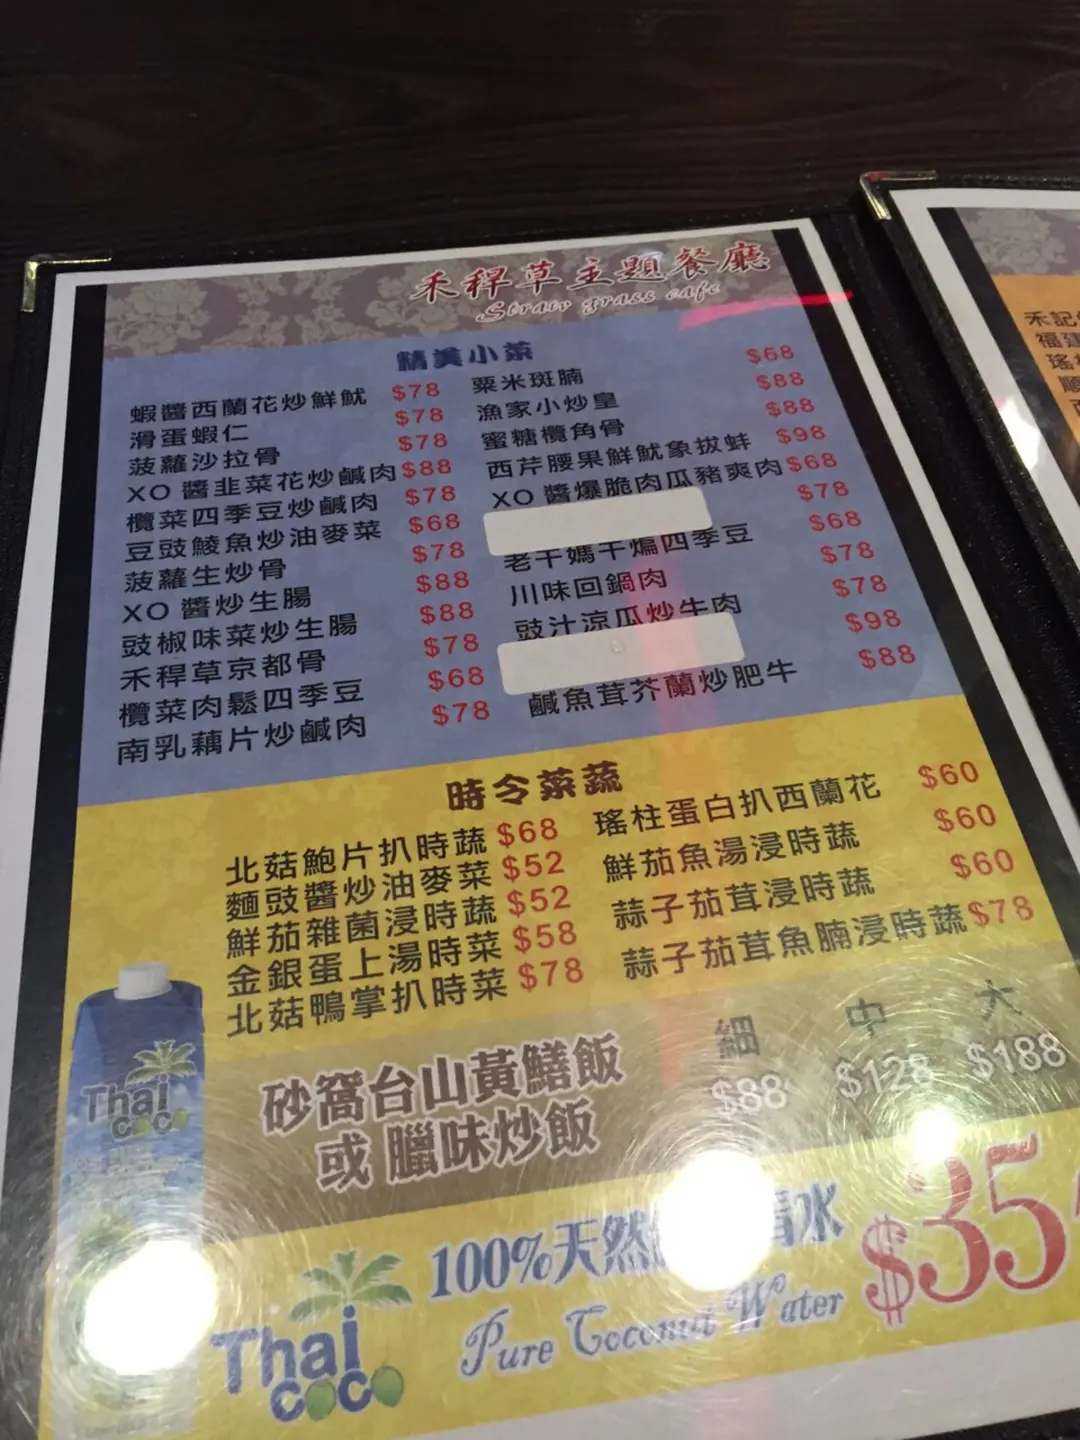 禾稈草主題餐廳
Straw grass cafe
精美小菜
蝦醬西蘭花炒鮮魷 $78
滑蛋蝦仁 $78
菠蘿沙拉骨 $78
XO 醬韭菜花炒鹹肉 $88
欖菜四季豆炒鹹肉 $78
豆豉鯪魚炒油麥菜 $68
菠蘿生炒骨 $78
XO 醬炒生腸 $88
豉椒味菜炒生腸 $88
禾稈草京都骨 $78
欖菜肉鬆四季豆 $68
南乳藕片炒鹹肉 $78
粟米斑腩 $68
漁家小炒皇 $88
蜜糖欖角骨 $88
西芹腰果鮮魷象拔蚌 $98
XO 醬爆脆肉瓜豬爽肉 $68
$78
老干媽干煸四季豆 $68
川味回鍋肉 $78
豉汁涼瓜炒牛肉 $78
$98
鹹魚茸芥蘭炒肥牛 $88
時令菜蔬
北菇鮑片扒時蔬 $68
麵豉醬炒油麥菜 $52
鮮茄雜菌浸時蔬 $52
金銀蛋上湯時菜 $58
北菇鴨掌扒時菜 $78
瑤柱蛋白扒西蘭花 $60
鮮茄魚湯浸時蔬 $60
蒜子茄茸浸時蔬 $60
蒜子茄茸魚腩浸時蔬 $78
砂窩台山黃鱔飯
或 臘味炒飯
細 中 大
$88 $128 $188
Thai
coco
100%天然
水
Pure Coconut Water
$35
Thai
coco
禾記
福建
瑤
順